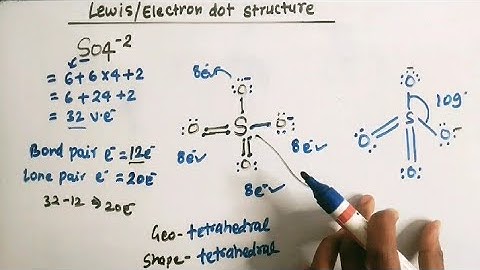 Lewis/Electron dot structure
So4⁻²
= 6+6×4+2
= 6+24+2
= 32 v.e⁻
Bond pair e⁻ = 12e⁻
Lone pair e⁻ = 20e⁻
32-12 → 20e⁻
8e⁻✓
:Ö:⁻
:O = S - O:⁻
8e⁻✓ 8e⁻✓
:O:
8e⁻✓
:O:⁻
109°
S
:O: O:⁻
:O:
Geo- tetrahedral
Shape- tetrahedral